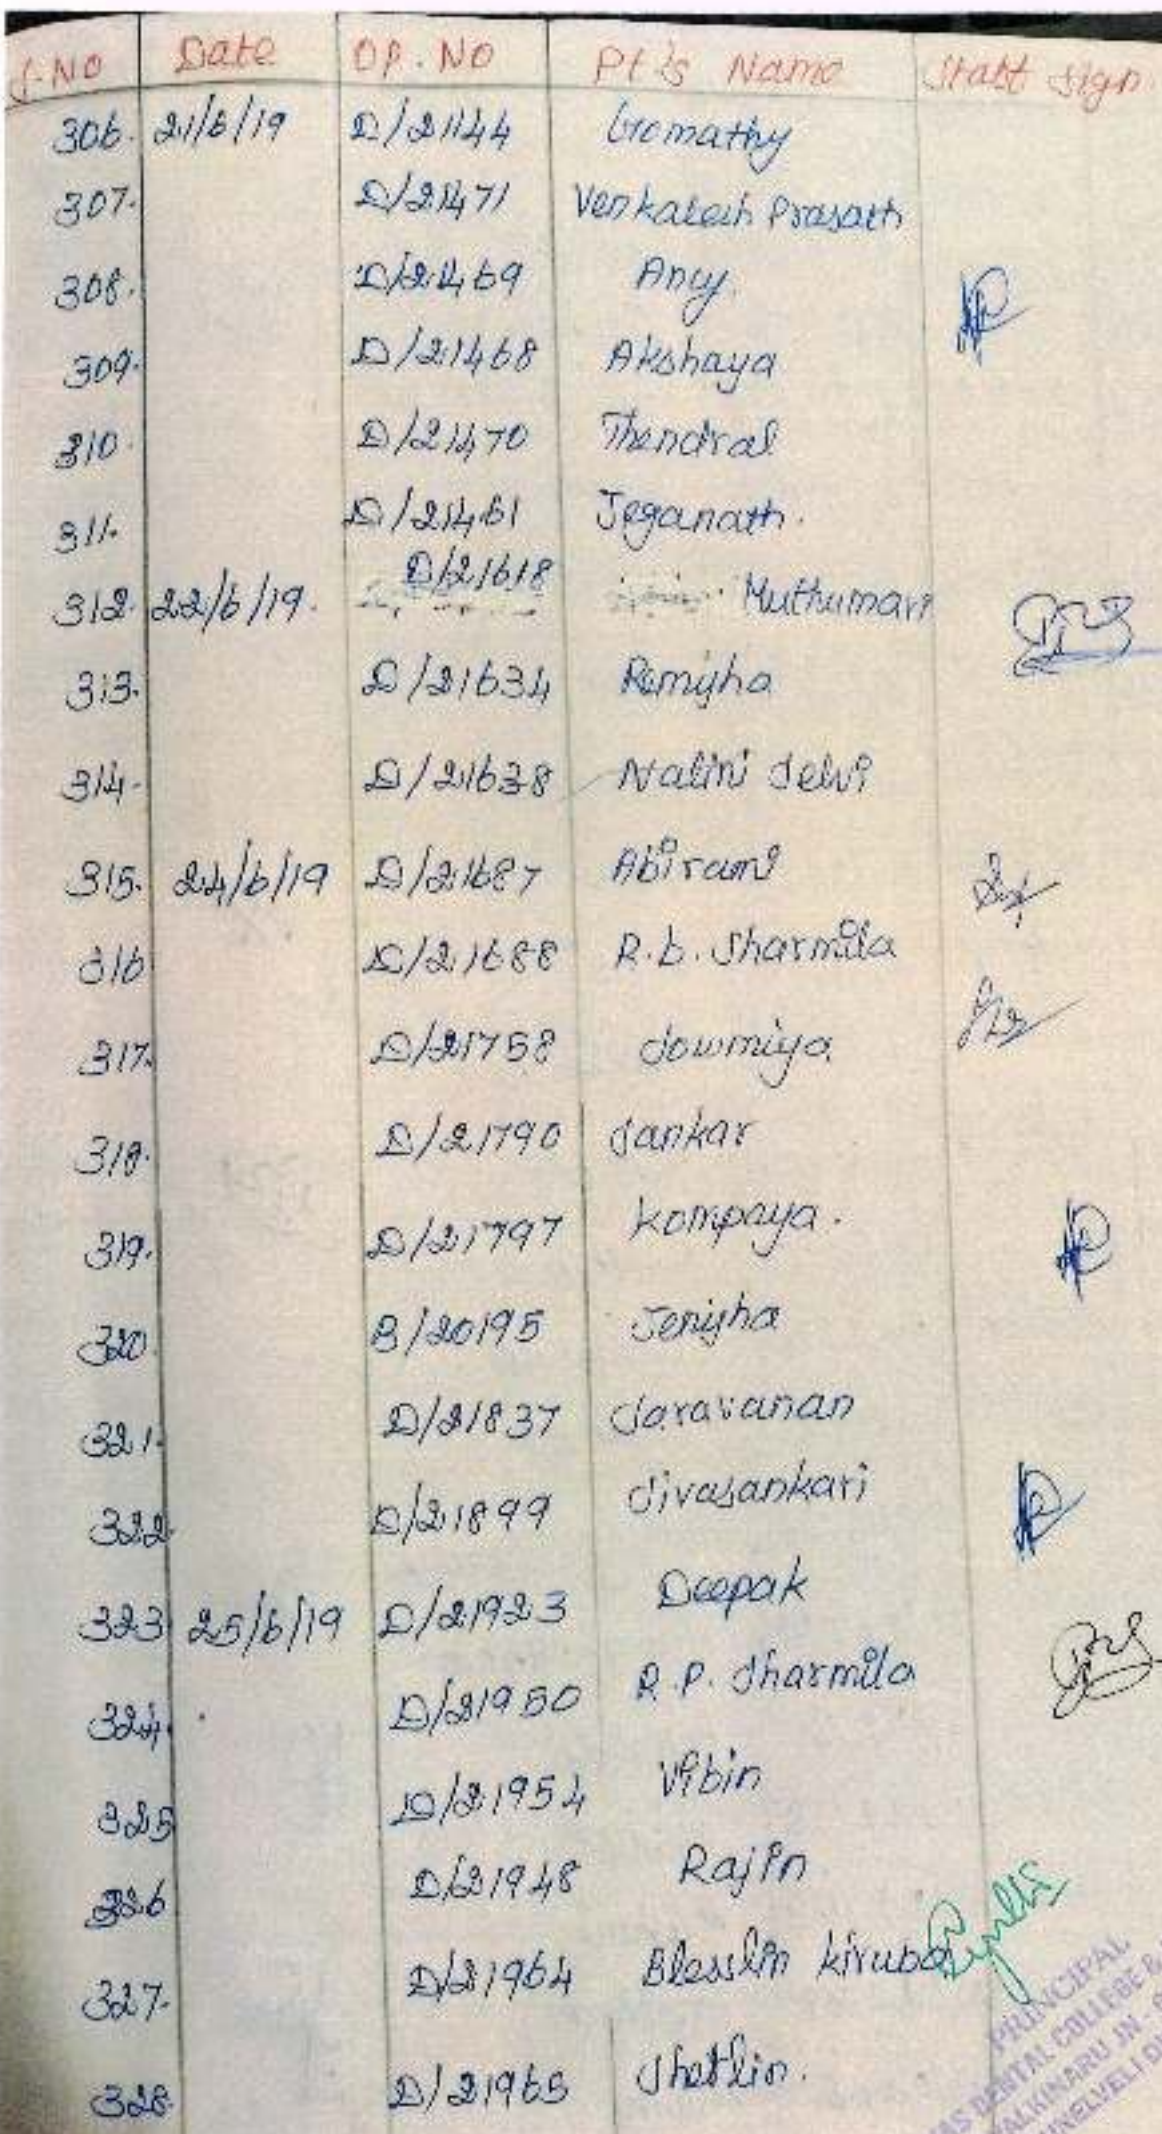 S.NO Date OP. NO Pt's Name Staff Sign.
306. 21/6/19 D/21144 Gomathy
307. D/21471 Venkatesh Prasath
308. D/21469 Ancy.
309. D/21468 Akshaya
310. D/21470 Thendral
311. D/21461 Jeganath.
312. 22/6/19. D/21618 Muthumari
313. D/21634 Remisha
314. D/21638 Nalini Selvi
315. 24/6/19 D/21687 Abirami
316 D/21688 R.b. Sharmila
317. D/21758 Sowmiya
318. D/21790 Sankar
319. D/21797 Kompaya.
320. B/20195 Jenisha
321. D/21837 Saravanan
322. D/21899 Sivasankari
323 25/6/19 D/21923 Deepak
324. D/21950 R.P. Sharmila
325 D/21954 Vibin
326 D/21948 Rajin
327. D/21964 Blesslin kiruba
328. D/21965 Sheblin.
PRINCIPAL
DENTAL COLLEGE &